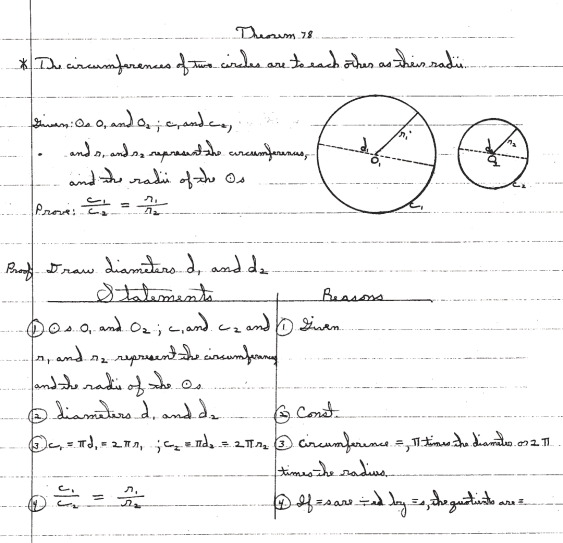 Theorem 78
* The circumferences of two circles are to each other as their radii.
Given: ⊙s O₁ and O₂; c₁ and c₂,
and r₁ and r₂ represent the circumferences,
and the radii of the ⊙s
Prove: c₁/c₂ = r₁/r₂
d₁ r₁ O₁ c₁
d₂ r₂ O₂ c₂
Proof Draw diameters d₁ and d₂
Statements Reasons
① ⊙s O₁ and O₂; c₁ and c₂ and ① Given
r₁ and r₂ represent the circumferences
and the radii of the ⊙s
② diameters d₁ and d₂ ② Const.
③ c₁ = πd₁ = 2πr₁; c₂ = πd₂ = 2πr₂ ③ Circumference =, π times the diameter or 2π
times the radius.
④ c₁/c₂ = r₁/r₂ ④ If =s are ÷ed by =s, the quotients are =